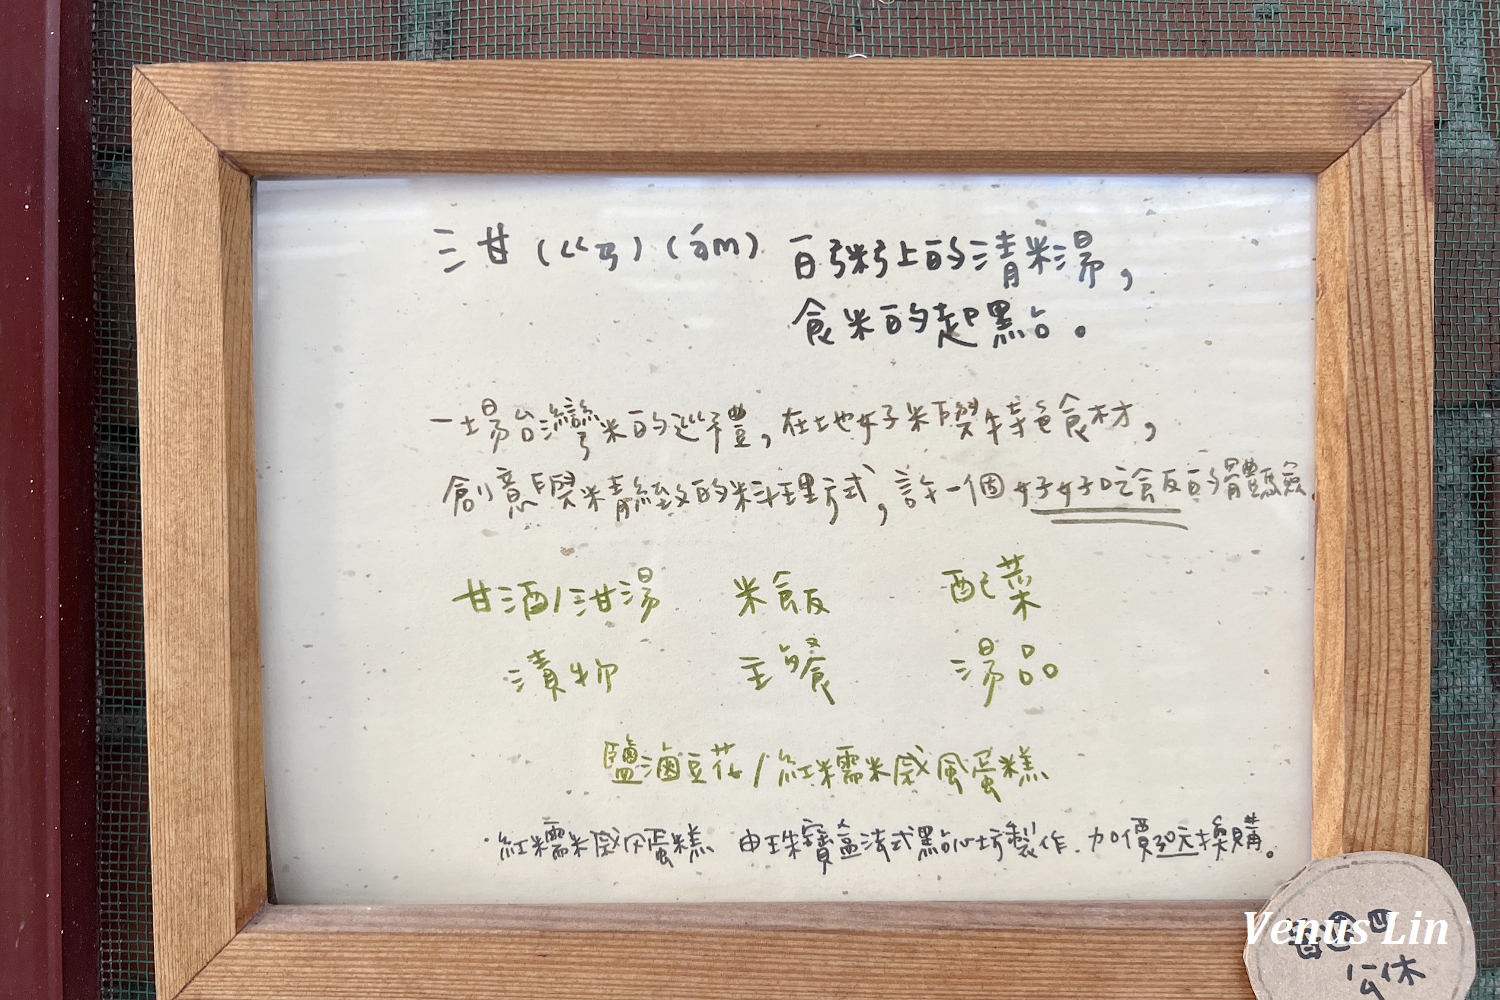 泔（ㄍㄢ）（ám） 白粥上的清米湯，
食米的起點。
一場台灣米的巡禮，在地好米與特色食材，
創意與精緻的料理方式，許一個好好吃飯的體驗。
甘酒/泔湯 米飯 配菜
漬物 主餐 湯品
鹽滷豆花/紅糯米戚風蛋糕
·紅糯米戚風蛋糕 由珠寶盒法式點心坊製作.加價30元換購。
公休
Venus Lin